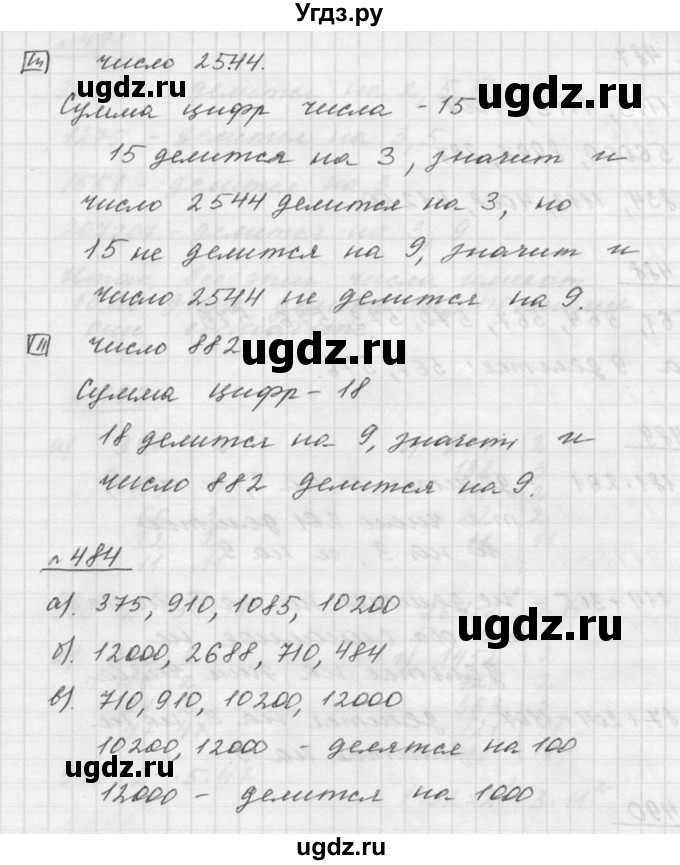 Угдз.ру
число 2544.
Сумма цифр числа - 15
ugdz.ru
15 делится на 3, значит и
ugdz.ru
число 2544 делится на 3, но
15 не делится на 9, значит и
число 2544 не делится на 9.
VII число 882
ugdz.ru
Сумма цифр - 18
18 делится на 9, значит и
число 882 делится на 9.
ugdz.ru
№ 484
а). 375, 910, 1085, 10200
ugdz.ru
б). 12000, 2688, 710, 484
в). 710, 910, 10200, 12000
10200, 12000 - делятся на 100
ugdz.ru
12000 - делится на 1000
ugdz.ru
ugdz.ru